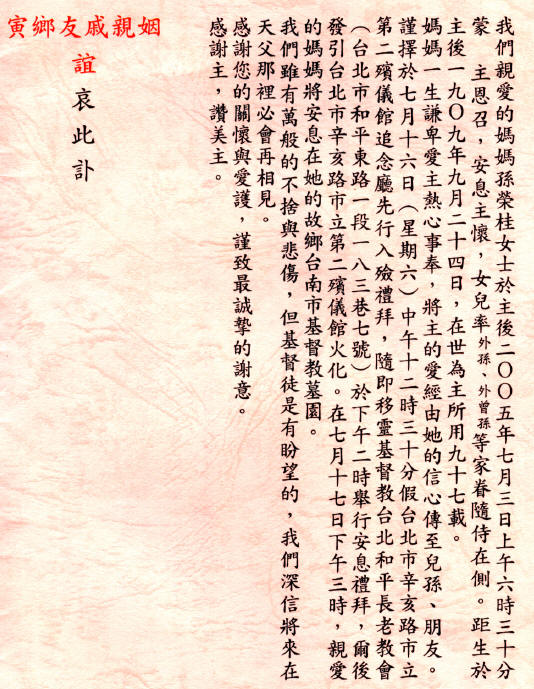 我們親愛的媽媽孫榮桂女士於主後二〇〇五年七月三日上午六時三十分
蒙　主恩召，安息主懷，女兒率外孫、外曾孫等家眷隨侍在側。距生於
主後一九〇九年九月二十四日，在世為主所用九十七載。
媽媽一生謙卑愛主熱心事奉，將主的愛經由她的信心傳至兒孫、朋友。
謹擇於七月十六日（星期六）中午十二時三十分假台北市辛亥路市立
第二殯儀館追念廳先行入殮禮拜，隨即移靈基督教台北和平長老教會
（台北市和平東路一段一八三巷七號）於下午二時舉行安息禮拜，爾後
發引台北市辛亥路市立第二殯儀館火化。在七月十七日下午三時，親愛
的媽媽將安息在她的故鄉台南市基督教墓園。
我們雖有萬般的不捨與悲傷，但基督徒是有盼望的，我們深信將來在
天父那裡必會再相見。
感謝您的關懷與愛護，謹致最誠摯的謝意。
感謝主，讚美主。
姻親戚友鄉寅
誼
哀此訃